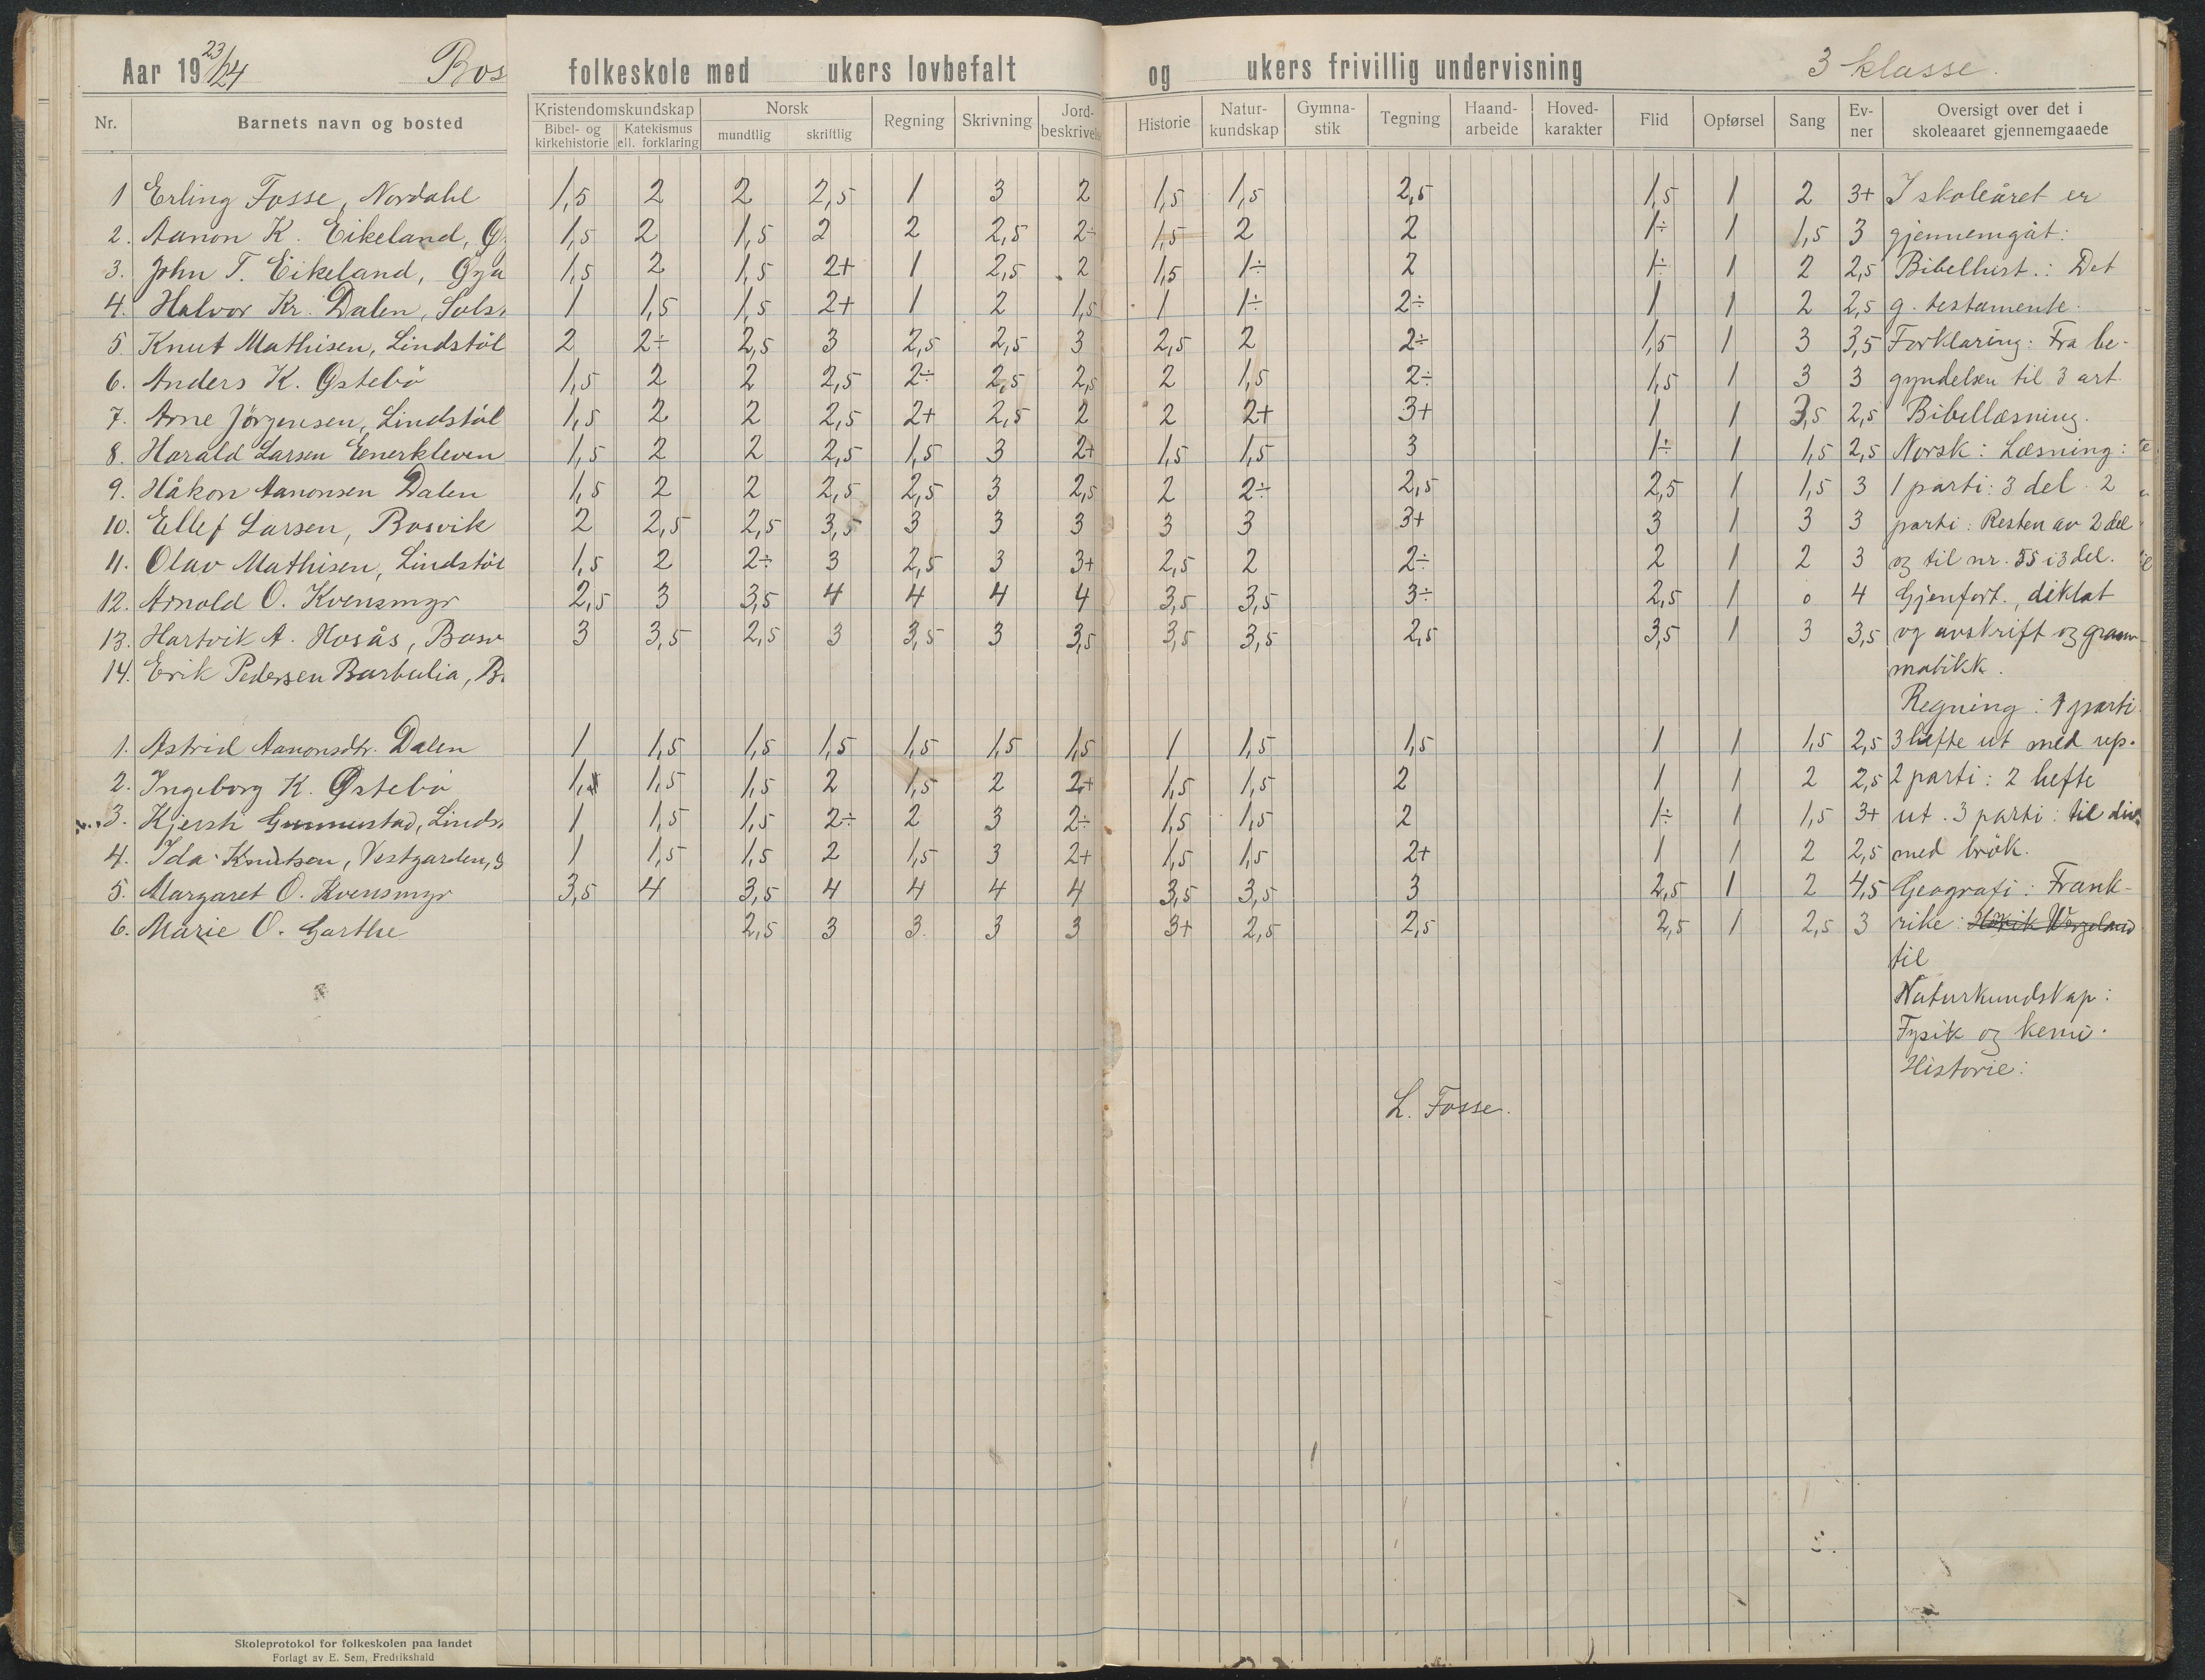 Aar 1923/24 Bos folkeskole med ukers lovbefalt og ukers frivillig undervisning 3 klasse.
Nr. Barnets navn og bosted Kristendomskundskap Bibel- og kirkehistorie Katekismus ell. forklaring Norsk mundtlig skriftlig Regning Skrivning Jord-beskrivelse Historie Natur-kundskap Gymna-stik Tegning Haand-arbeide Hoved-karakter Flid Opførsel Sang Ev-ner Oversigt over det i skoleaaret gjennemgaaede
1 Erling Fosse, Nordahl 1,5 2 2 2,5 1 3 2 1,5 1,5 2,5 1,5 1 2 3+ I skoleåret er
2. Aanon K. Eikeland, 1,5 2 1,5 2 2 2,5 2÷ 1,5 2 2 1÷ 1 1,5 3 gjennemgåt:
3. John T. Eikeland, Gja 1,5 2 1,5 2+ 1 2,5 2 1,5 1÷ 2 1÷ 1 2 2,5 Bibelhist.: Det
4. Halvor Kr. Dalen, Sols 1 1,5 1,5 2+ 1 2 1,5 1 1÷ 2÷ 1 1 2 2,5 g. testamente.
5 Knut Mathisen, Lindstöl 2 2÷ 2,5 3 2,5 2,5 3 2,5 2 2÷ 1,5 1 3 3,5 Forklaring: Fra be-
6. Anders K. Østebö 1,5 2 2 2,5 2÷ 2,5 2,5 2 1,5 2÷ 1,5 1 3 3 gyndelsen til 3 art.
7. Arne Jörgensen, Lindstöl 1,5 2 2 2,5 2+ 2,5 2 2 2+ 3+ 1 1 3,5 2,5 Bibellæsning.
8. Harald Larsen Enerkleven 1,5 2 2 2,5 1,5 3 2+ 1,5 1,5 3 1÷ 1 1,5 2,5 Norsk: Læsning:
9. Håkon Aanonsen Dalen 1,5 2 2 2,5 2,5 3 2,5 2 2÷ 2,5 2,5 1 1,5 3 1 parti: 3 del. 2
10. Ellef Larsen, Bosvik 2 2,5 2,5 3,5 3 3 3 3 3 3+ 3 1 3 3 parti: Resten av 2 del
11. Olav Mathisen, Lindstöl 1,5 2 2÷ 3 2,5 3 3+ 2,5 2 2÷ 2 1 2 3 og til nr. 55 i 3 del.
12. Arnold O. Kvensmyr 2,5 3 3,5 4 4 4 4 3,5 3,5 3÷ 2,5 1 0 4 Gjenfort., diktat
13. Hartvik A. Hosås, Bosv 3 3,5 2,5 3 3,5 3 3,5 3,5 3,5 2,5 3,5 1 3 3,5 og avskrift og gram-
14. Erik Pedersen Barbulia, B matikk.
Regning: 1 parti
1. Astrid Aanonsdtr. Dalen 1 1,5 1,5 1,5 1,5 1,5 1,5 1 1,5 1,5 1 1 1,5 2,5 3 hefte ut med rep.
2. Ingeborg K. Østebö 1, 1,5 1,5 2 1,5 2 2+ 1,5 1,5 2 1 1 2 2,5 2 parti: 2 hefte
3. Kjersti Gunnustad, Linds 1 1,5 1,5 2÷ 2 3 2÷ 1,5 1,5 2 1÷ 1 1,5 3+ ut. 3 parti: til div.
4. Ida Knutsen, Vestgarden, 1 1,5 1,5 2 1,5 3 2+ 1,5 1,5 2+ 1 1 2 2,5 med brök.
5. Margaret O. Kvensmyr 3,5 4 3,5 4 4 4 4 3,5 3,5 3 2,5 1 2 4,5 Geografi: Frank-
6. Marie O. Garthe 2,5 3 3. 3 3 3+ 2,5 2,5 2,5 1 2,5 3 rike: Henrik Wergeland
til
Naturkundskap:
Fysik og kemi.
Historie:
L. Fosse.
Skoleprotokol for folkeskolen paa landet
Forlagt av E. Sem, Fredrikshald